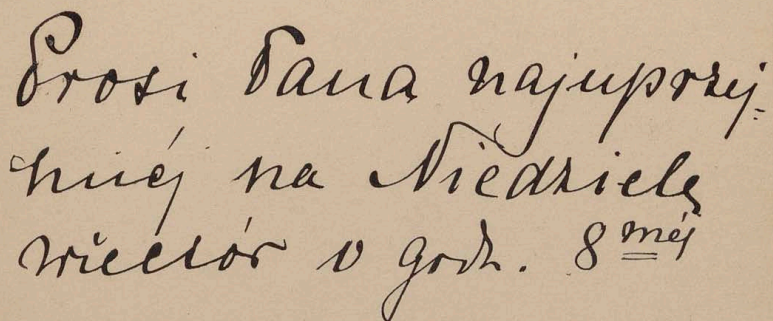 Prosi Pana najuprzej-
miéj na Niedzielę
wieczór o godz. 8 méj